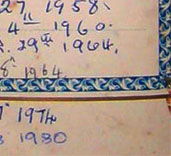 27 1958.
4 II 1960.
29 III 1964.
8 1964
1974
1980